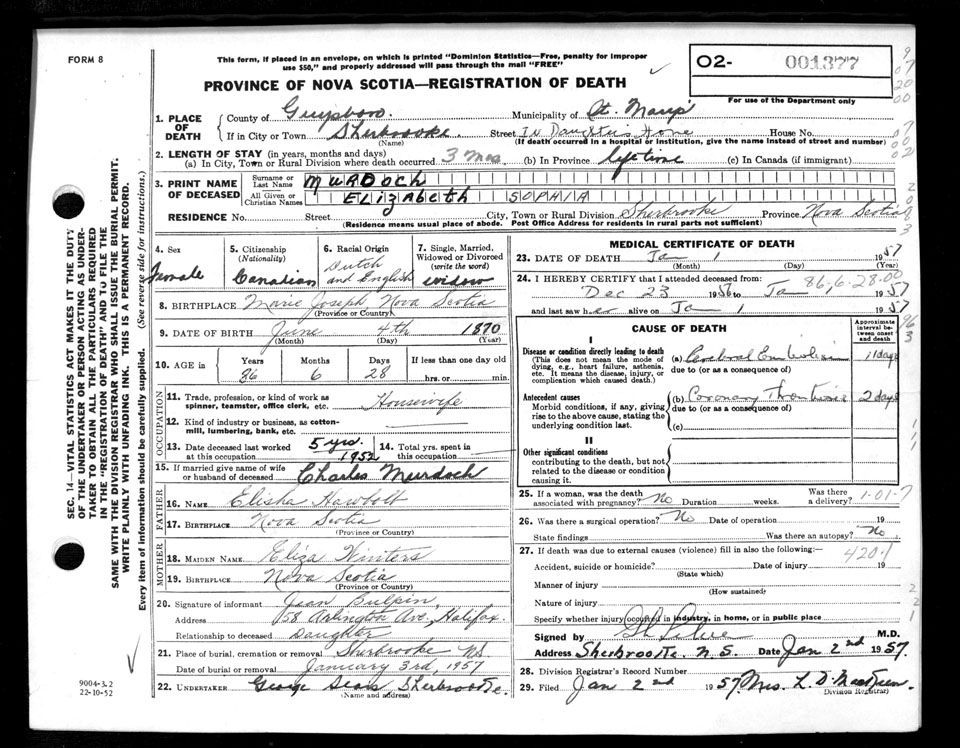 FORM 8
This form, if placed in an envelope, on which is printed "Dominion Statistics—Free, penalty for improper
use $50," and properly addressed will pass through the mail "FREE"
PROVINCE OF NOVA SCOTIA—REGISTRATION OF DEATH
O2- 001377
For use of the Department only
1. PLACE OF DEATH
County of Guysboro. Municipality of St. Mary's
If in City or Town Sherbrooke. Street In Daughter's Home House No.
(Name) (If death occurred in a hospital or institution, give the name instead of street and number)
2. LENGTH OF STAY (in years, months and days)
(a) In City, Town or Rural Division where death occurred 3 mos. (b) In Province lifetime (c) In Canada (if immigrant)
3. PRINT NAME OF DECEASED
Surname or Last Name MURDOCH
All Given or Christian Names ELIZABETH SOPHIA
RESIDENCE No. Street City, Town or Rural Division Sherbrooke Province Nova Scotia
(Residence means usual place of abode. Post Office Address for residents in rural parts not sufficient)
4. Sex Female
5. Citizenship (Nationality) Canadian
6. Racial Origin Dutch and English
7. Single, Married, Widowed or Divorced (write the word) widow
8. BIRTHPLACE Marie Joseph, Nova Scotia
(Province or Country)
9. DATE OF BIRTH June 4th 1870
(Month) (Day) (Year)
10. AGE in Years Months Days If less than one day old
86 6 28 hrs. or min.
OCCUPATION
11. Trade, profession, or kind of work as
spinner, teamster, office clerk, etc. Housewife
12. Kind of industry or business, as cotton-
mill, lumbering, bank, etc.
13. Date deceased last worked at this occupation 5 yrs. 1952
14. Total yrs. spent in this occupation
15. If married give name of wife
or husband of deceased Charles Murdoch
FATHER
16. NAME Elisha Hawbolt
17. BIRTHPLACE Nova Scotia
(Province or Country)
MOTHER
18. MAIDEN NAME Eliza Winters
19. BIRTHPLACE Nova Scotia
(Province or Country)
20. Signature of informant Jean Bulpin,
Address 58 Arlington Ave, Halifax.
Relationship to deceased Daughter
21. Place of burial, cremation or removal Sherbrooke N.S.
Date of burial or removal January 3rd, 1957
22. UNDERTAKER George Sears Sherbrooke.
(Name and address)
MEDICAL CERTIFICATE OF DEATH
23. DATE OF DEATH Jan 1 1957
(Month) (Day) (Year)
24. I HEREBY CERTIFY that I attended deceased from: 86-6-28.00
Dec 23 1956 to Jan 1957
and last saw her alive on Jan 1 1957
CAUSE OF DEATH
Approximate interval between onset and death
I
Disease or condition directly leading to death
(This does not mean the mode of
dying, e.g., heart failure, asthenia,
etc. It means the disease, injury, or
complication which caused death.)
(a) Cerebral Embolism 11 days
due to (or as a consequence of)
Antecedent causes
Morbid conditions, if any, giving
rise to the above cause, stating the
underlying condition last.
(b) Coronary Thrombosis 2 days
due to (or as a consequence of)
(c)
II
Other significant conditions
contributing to the death, but not
related to the disease or condition
causing it.
25. If a woman, was the death
associated with pregnancy? No Duration weeks. Was there a delivery? 1-01-7
26. Was there a surgical operation? No Date of operation 19
State findings Was there an autopsy? No
27. If death was due to external causes (violence) fill in also the following:— 420-1
Accident, suicide or homicide? Date of injury 19
(State which)
Manner of injury
(How sustained)
Nature of injury
Specify whether injury occurred in industry, in home, or in public place
Signed by M.D.
Address Sherbrooke, N.S. Date Jan 2nd 1957.
28. Division Registrar's Record Number
29. Filed Jan 2nd 1957 Mrs. L. D.
Division Registrar)
SEC. 14—VITAL STATISTICS ACT MAKES IT THE DUTY
OF THE UNDERTAKER OR PERSON ACTING AS UNDER-
TAKER TO OBTAIN ALL THE PARTICULARS REQUIRED
IN THE "REGISTRATION OF DEATH" AND TO FILE THE
SAME WITH THE DIVISION REGISTRAR WHO SHALL ISSUE THE BURIAL PERMIT.
WRITE PLAINLY WITH UNFADING INK. THIS IS A PERMANENT RECORD.
Every item of information should be carefully supplied. (See reverse side for instructions.)
9004-3.2
22-10-52